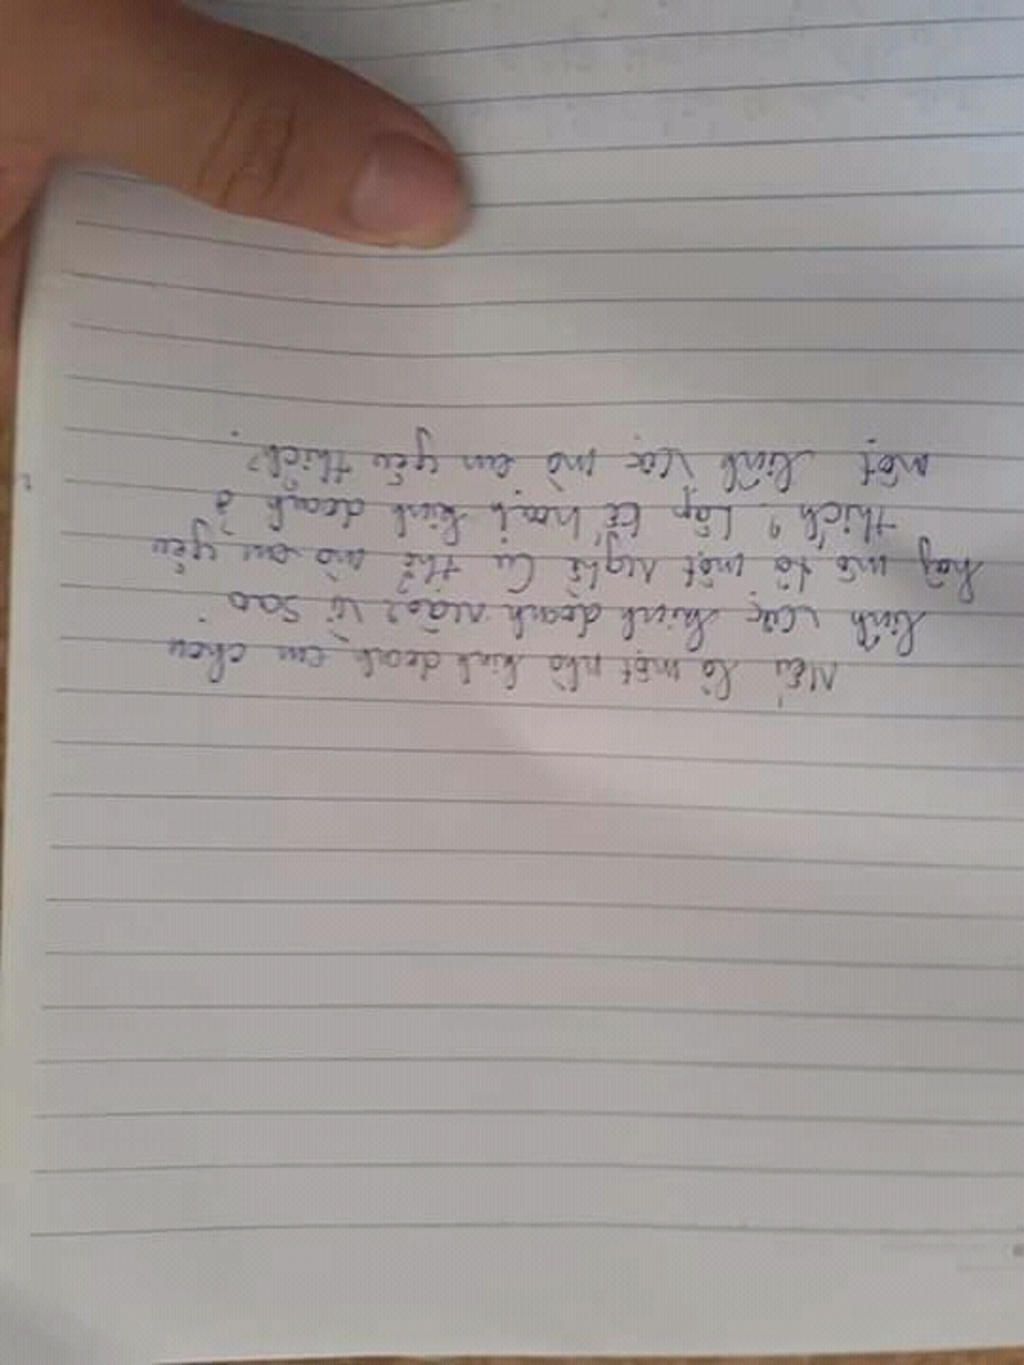 Nếu là một nhà kinh doanh, em chọn
lĩnh vực kinh doanh nào? Vì sao
hãy mô tả một nghề cụ thể mà em yêu
thích? Lập kế hoạch kinh doanh ở
một lĩnh vực mà em yêu thích?